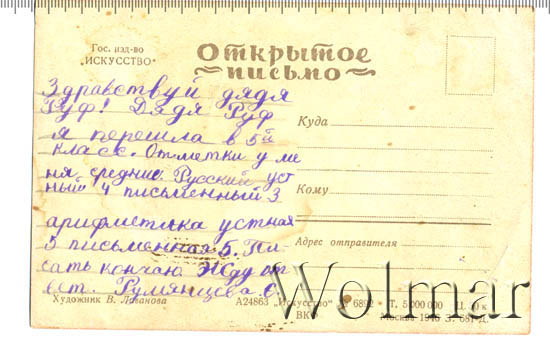 Гос. изд-во
„ИСКУССТВО"
Открытое
письмо
Здравствуй дядя
Руф! Дядя Руф
я перешла в 5й
класс. Отметки у ме
ня средние. Русский уст
ный 4 письменный 3
арифметика устная
5 письменная 5. Пи
сать кончаю Жду от
вет. Румянцева. С
Куда
Кому
Адрес отправителя
Художник В. Ливанова
А24863 „Искусство" 6892 Т. 5 000 000
Москва 1946 З. 681
Wolmar